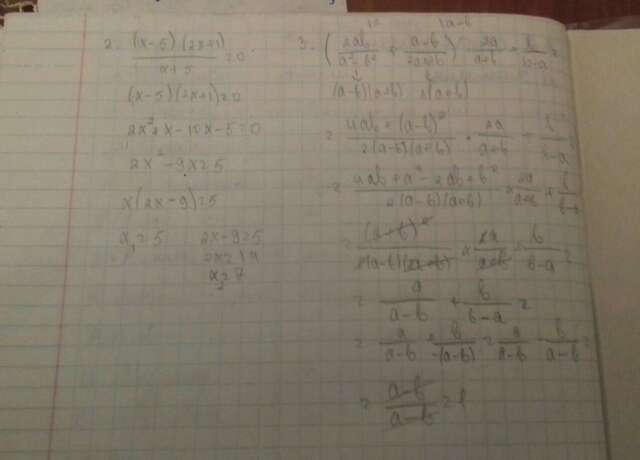 2. (x-5)(2x+1) / x+5 = 0
(x-5)(2x+1)=0
2x²+x-10x-5=0
2x²-9x=5
x(2x-9)=5
x₁=5 2x-9=5
2x=14
x₂=7
3. (2ab / a²-b² + a-b / 2a+2b) · 2a / a+b + b / b-a =
(a-b)(a+b) 2(a+b)
= 4ab+(a-b)² / 2(a-b)(a+b) · 2a / a+b + b / b-a
= 4ab+a²-2ab+b² / 2(a-b)(a+b) × 2a / a+b + b / b-a
= (a+b)² / 2(a-b)(a+b) × 2a / a+b + b / b-a =
= a / a-b + b / b-a =
= a / a-b + b / -(a-b) = a / a-b - b / a-b =
= a-b / a-b = 1